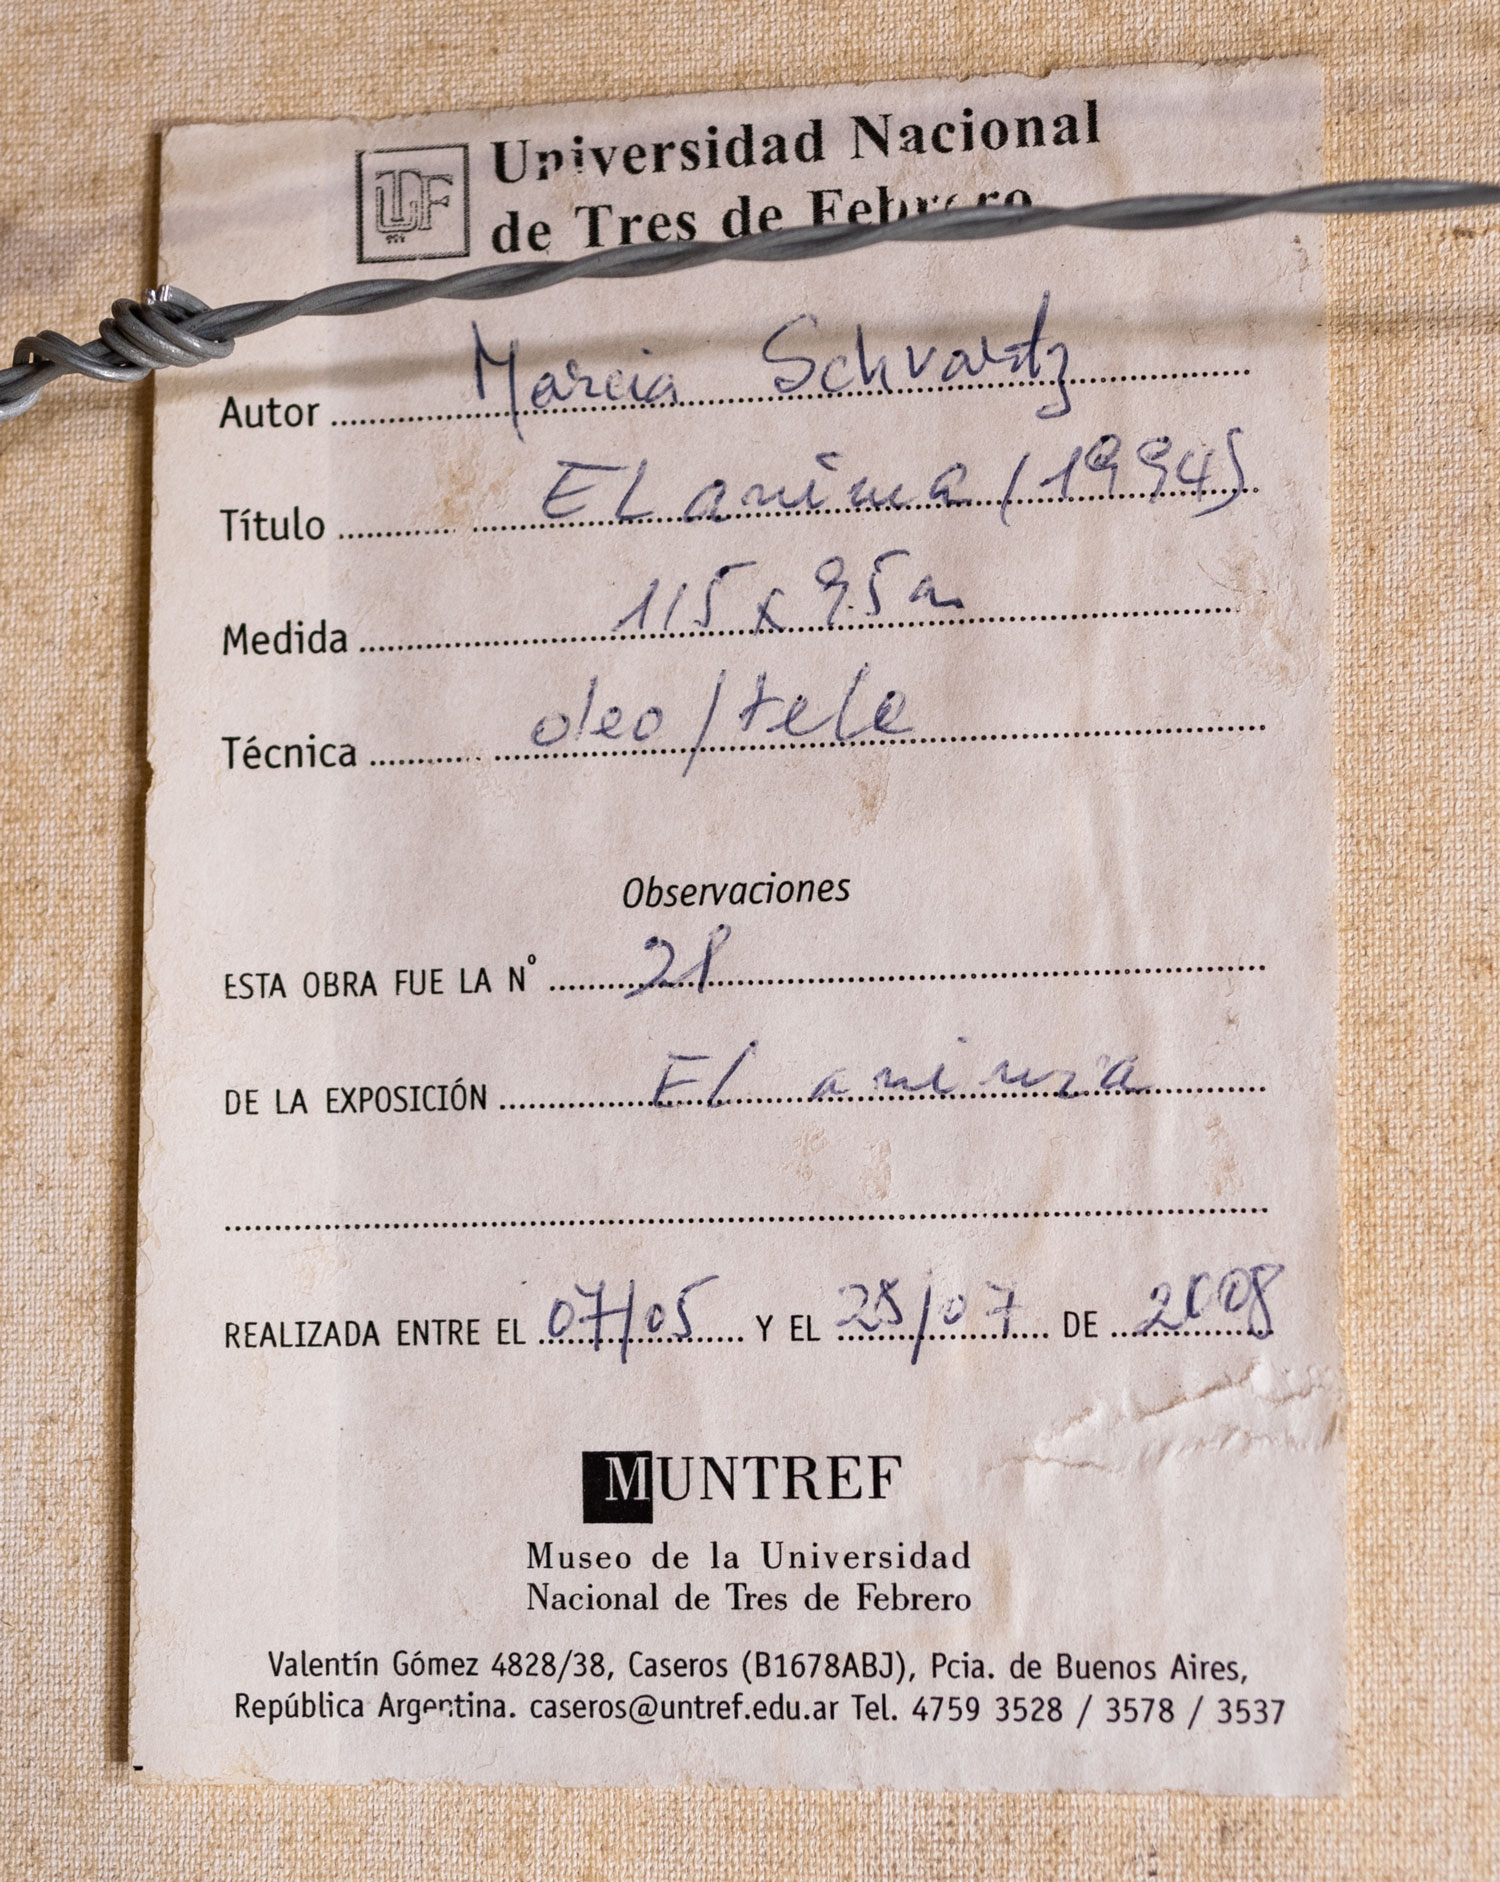 UTDF
Universidad Nacional
de Tres de Febrero
Autor Marcia Schvartz
Título El anima (1994)
Medida 115 x 95 cm
Técnica oleo/tela
Observaciones
ESTA OBRA FUE LA N° 28
DE LA EXPOSICIÓN El anima
REALIZADA ENTRE EL 07/05 Y EL 25/07 DE 2008
MUNTREF
Museo de la Universidad
Nacional de Tres de Febrero
Valentín Gómez 4828/38, Caseros (B1678ABJ), Pcia. de Buenos Aires,
República Argentina. caseros@untref.edu.ar Tel. 4759 3528 / 3578 / 3537